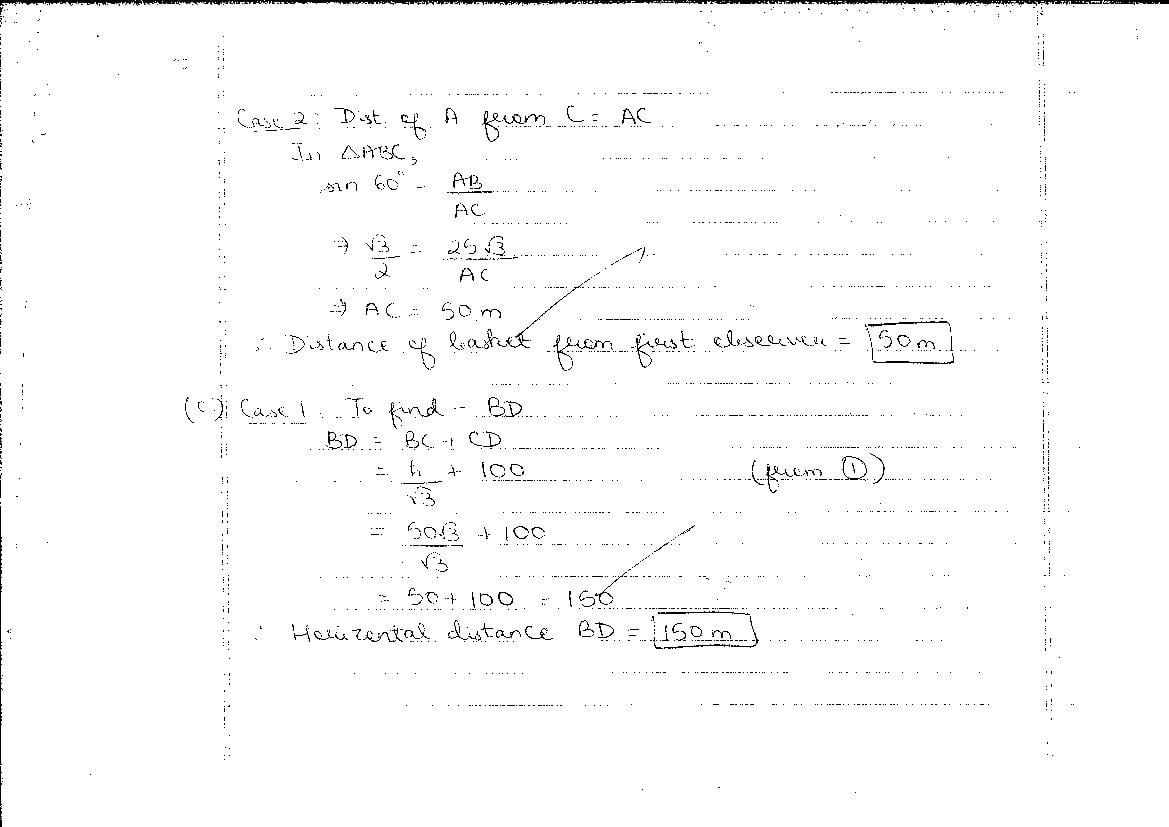 Case 2: Dist. of A from C = AC
In △ABC,
sin 60° = AB/AC
⇒ √3/2 = 25√3/AC
⇒ AC = 50 m
∴ Distance of basket from first observer = 50 m
(C) Case 1: To find - BD
BD = BC + CD
= h/√3 + 100 (from ①)
= 50√3/√3 + 100
= 50 + 100 = 150
∴ Horizontal distance BD = 150 m